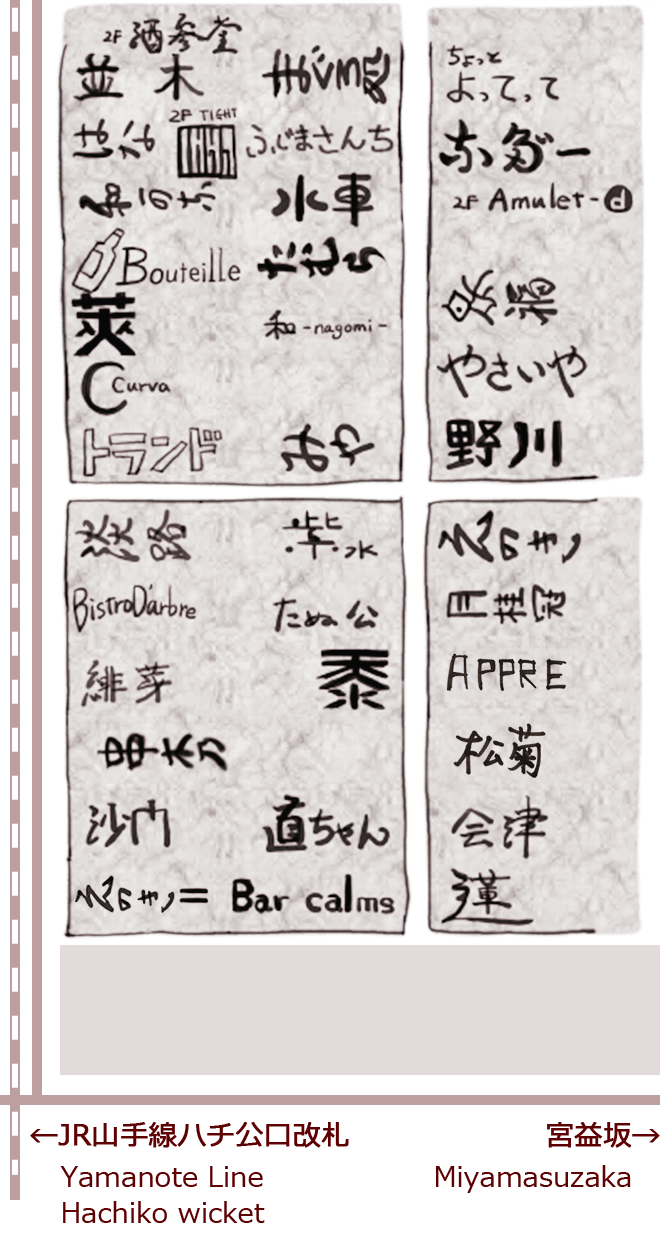 2F 酒参堂
並木
はな
2F TIGHT
ふじまさんち
水車
Bouteille
莢
和 -nagomi-
Curva
トランド
みや
ちょっと
よってって
2F Amulet-d
やさいや
野川
淡路
紫水
BistroD'arbre
たぬ公
緋芽
黍
沙門
直ちゃん
Bar calms
月桂冠
APPRE
松菊
会津
蓮
←JR山手線ハチ公口改札
Yamanote Line
Hachiko wicket
宮益坂→
Miyamasuzaka